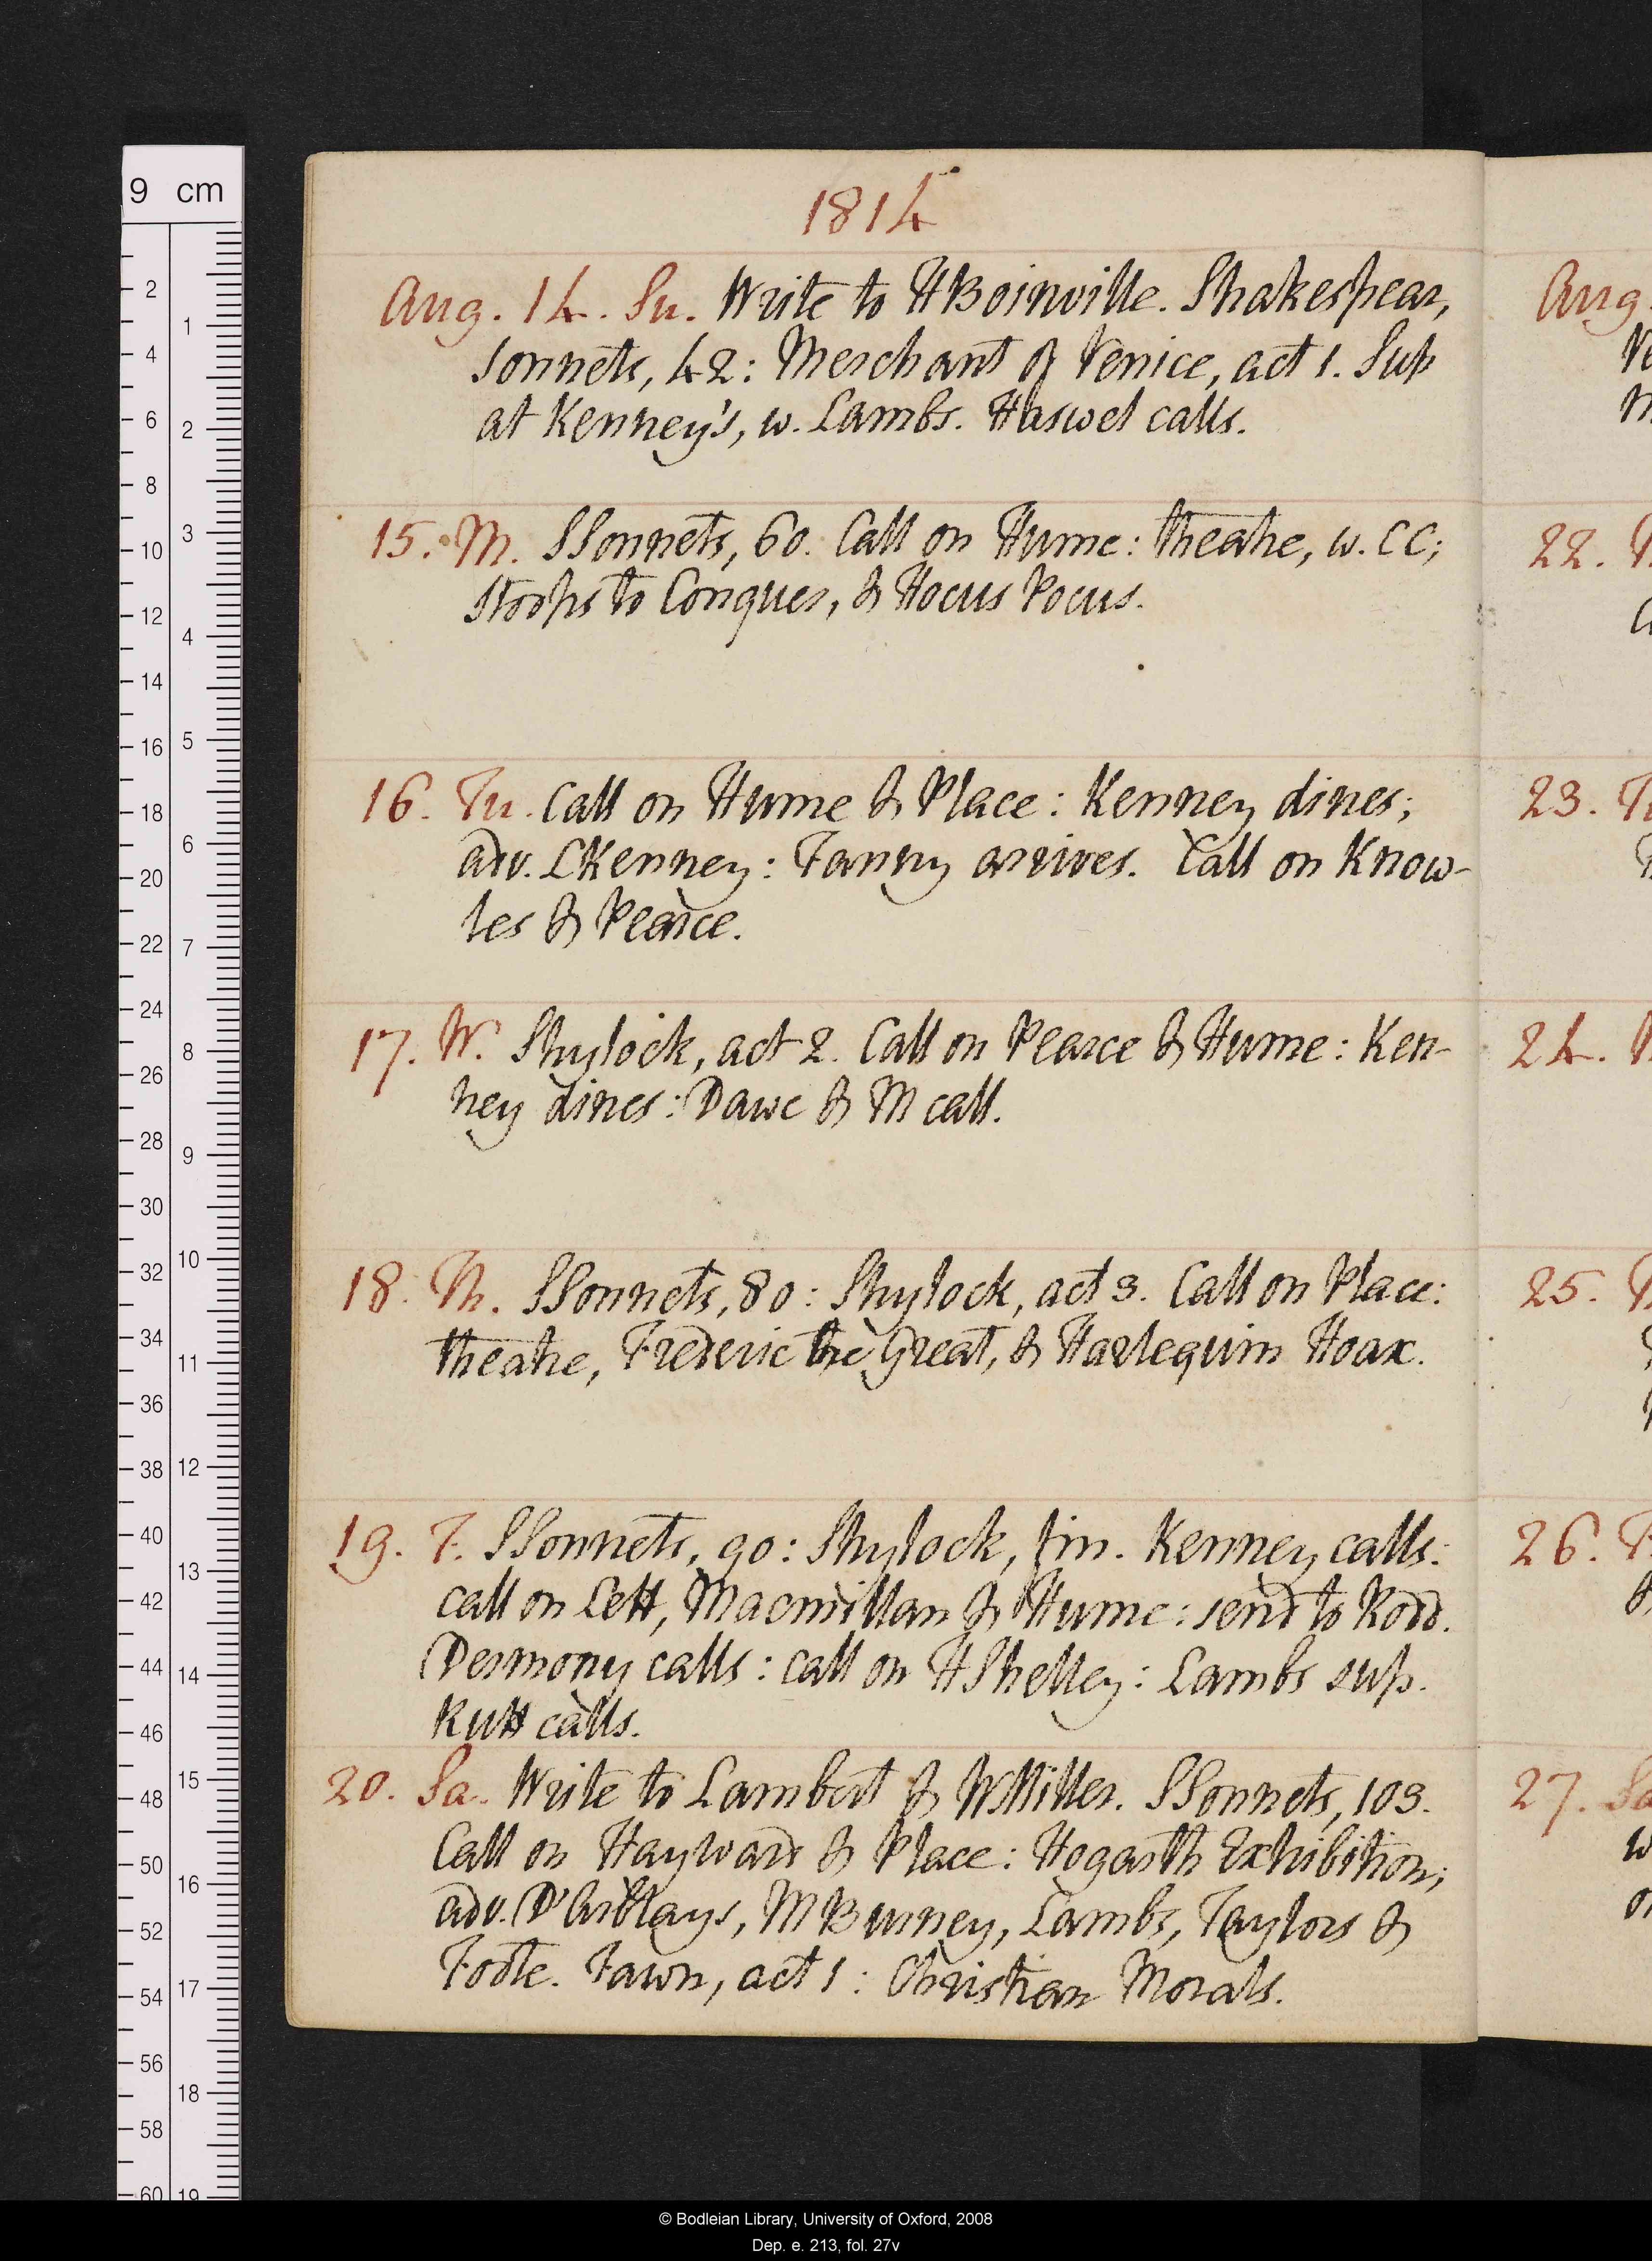 1814
Aug. 14. Su. Write to HBoinville. Shakespear,
Sonnets, 42: Merchant of Venice, act 1. Sup
at Kenney's, w. Lambs. Haswel calls.
15. M. SSonnets, 60. Call on Hume: theatre, w. CC;
Stoops to Conquer, & Hocus Pocus.
16. Tu. Call on Hume & Place: Kenney dines;
adv. LKenney: Fanny arrives. Call on Know-
les & Pearce.
17. W. Shylock, act 2. Call on Pearce & Hume: Ken-
ney dines: Dawe & M call.
18. Th. SSonnets, 80: Shylock, act 3. Call on Place:
theatre, Frederic the Great, & Harlequim Hoax.
19. F. SSonnets, 90: Shylock, fin. Kenney calls:
call on Lett, Macmillan & Hume: send to Rodd.
Desmony calls: call on HShelley: Lambs sup.
Rutt calls.
20. Sa. Write to Lambert & WMiller. SSonnets, 103.
Call on Hayward & Place: Hogarth Exhibition;
adv. D'Arblays, MBurney, Lambs, Taylors &
Foote. Fawn, act 1: Christian Morals.
Aug.
22.
23.
24.
25.
26.
27. Sa
9 cm
2
4
6
8
10
12
14
16
18
20
22
24
26
28
30
32
34
36
38
40
42
44
46
48
50
52
54
56
58
60
1
2
3
4
5
6
7
8
9
10
11
12
13
14
15
16
17
18
19
© Bodleian Library, University of Oxford, 2008
Dep. e. 213, fol. 27v